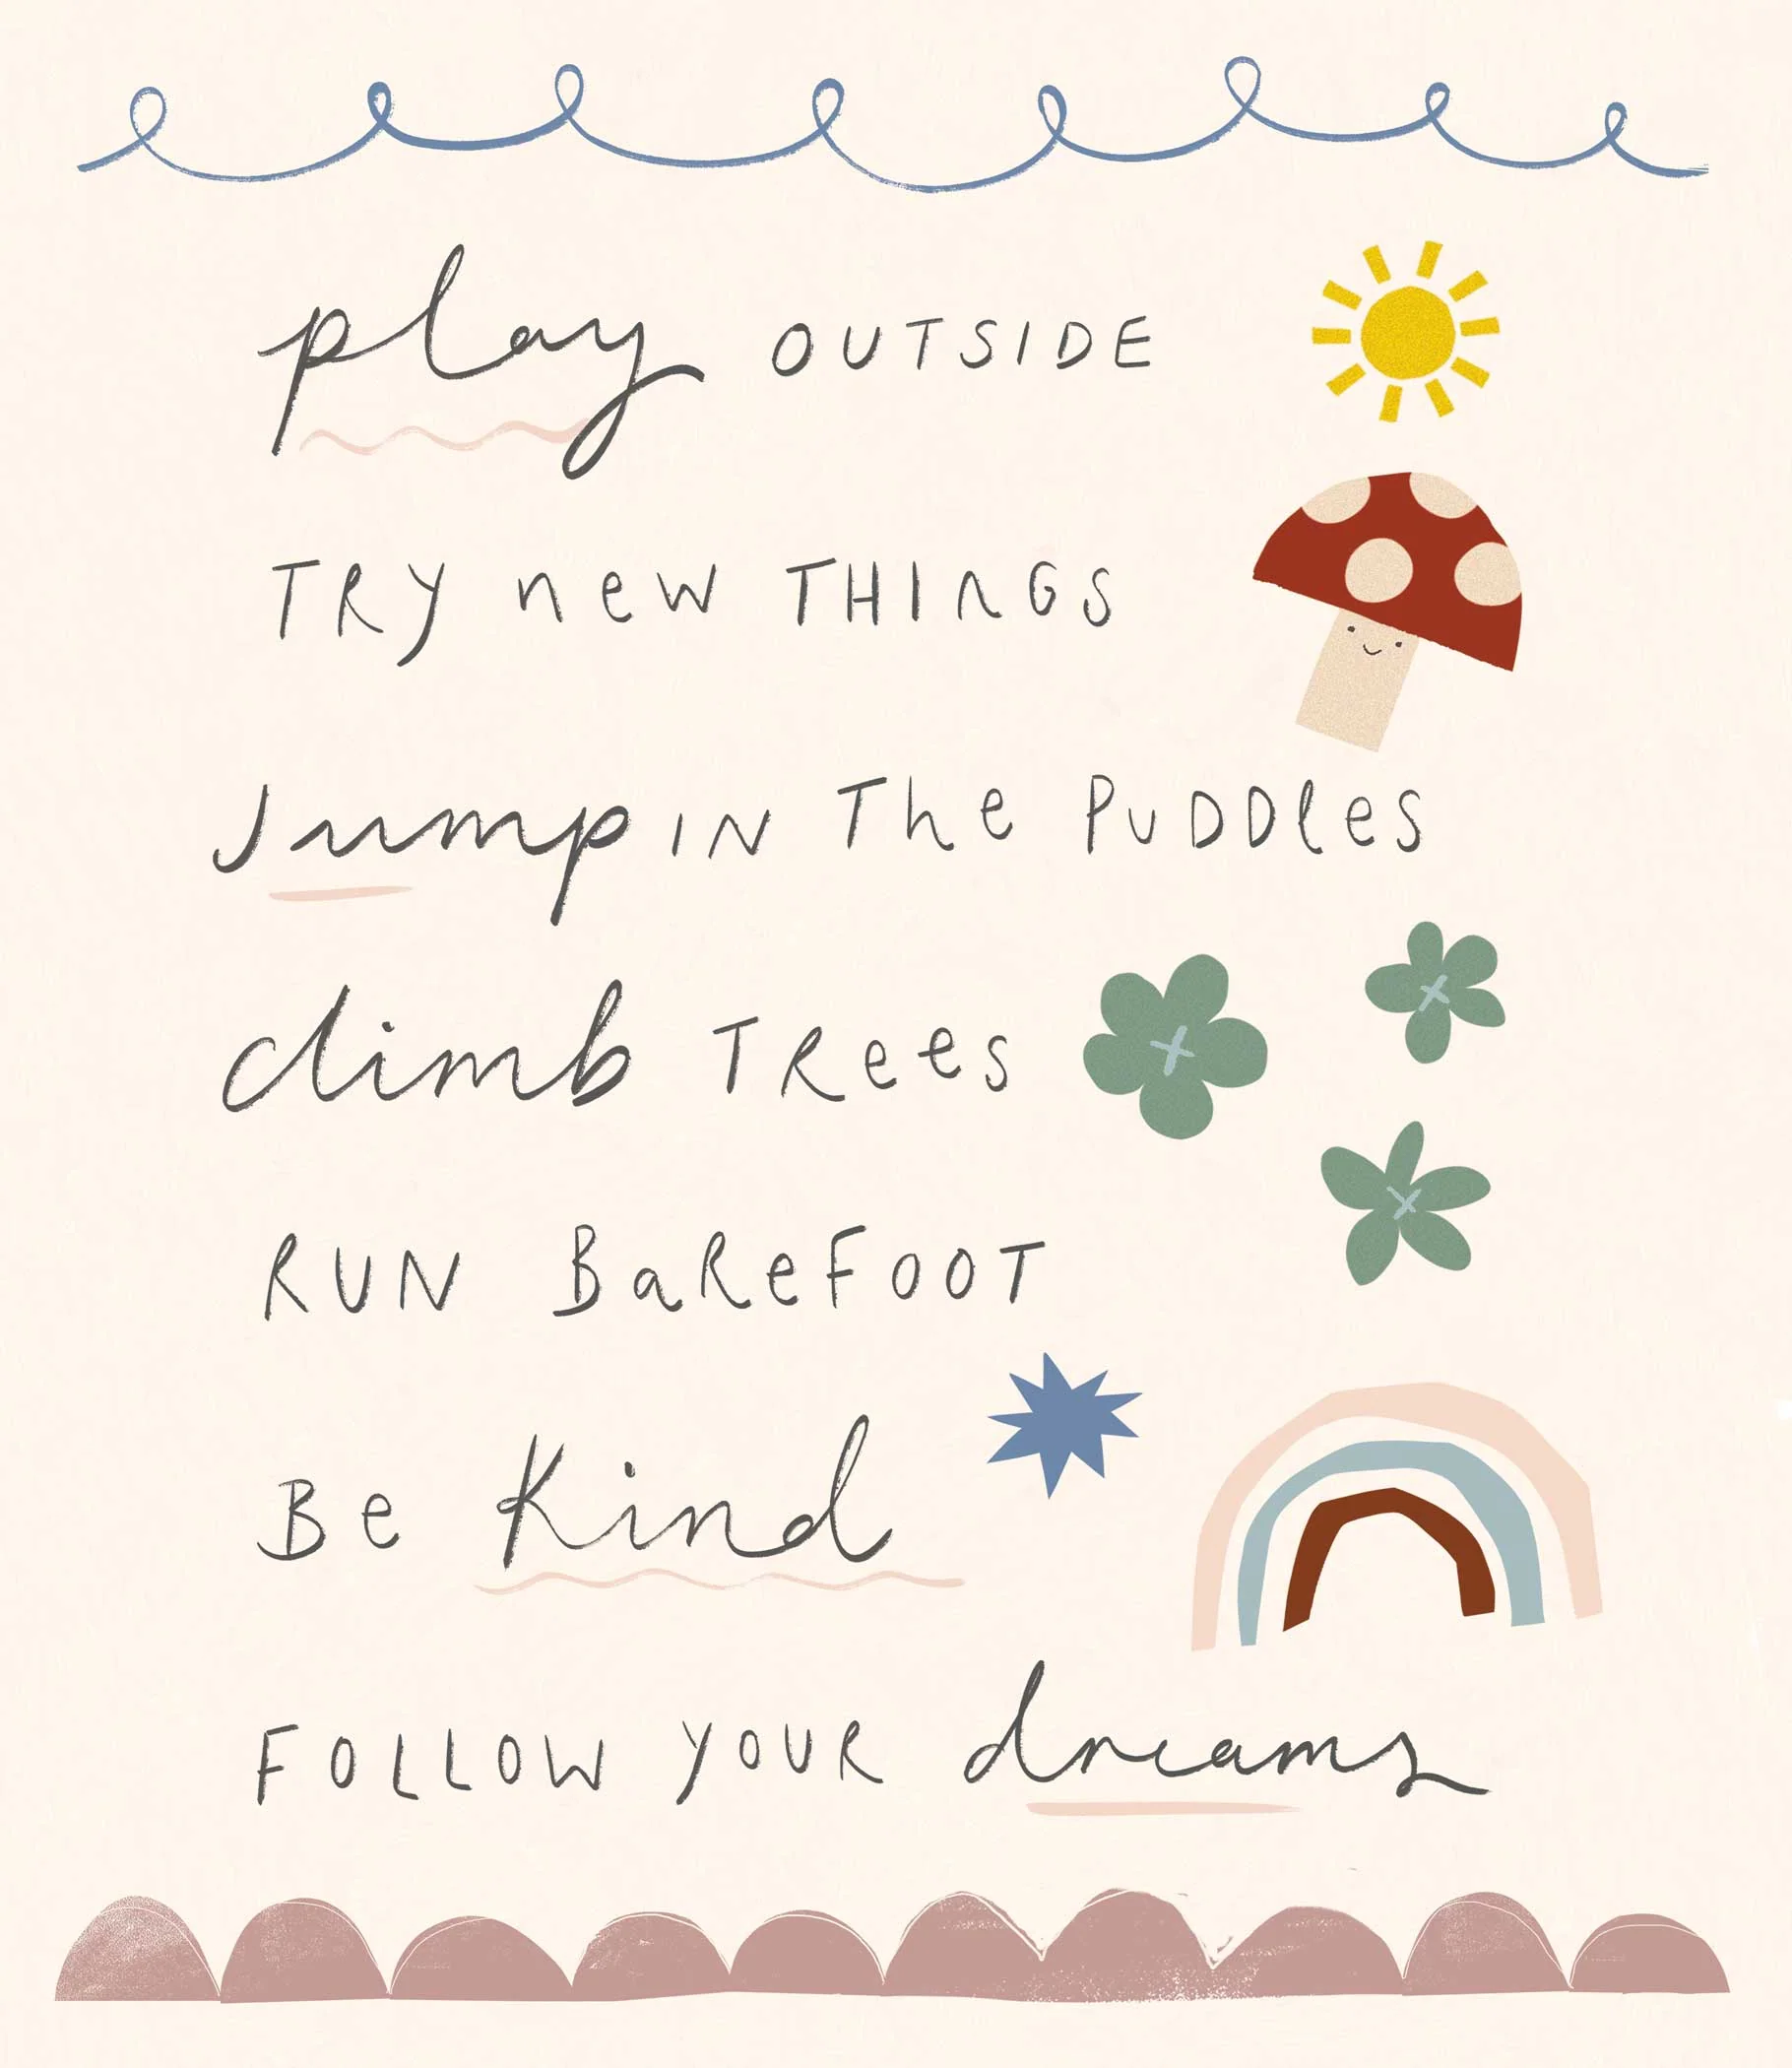 play OUTSIDE
TRY new THINGS
Jump IN The PuDDles
climb TRees
RUN BaReFOOT
Be Kind
FOLLOW YOUR dreams